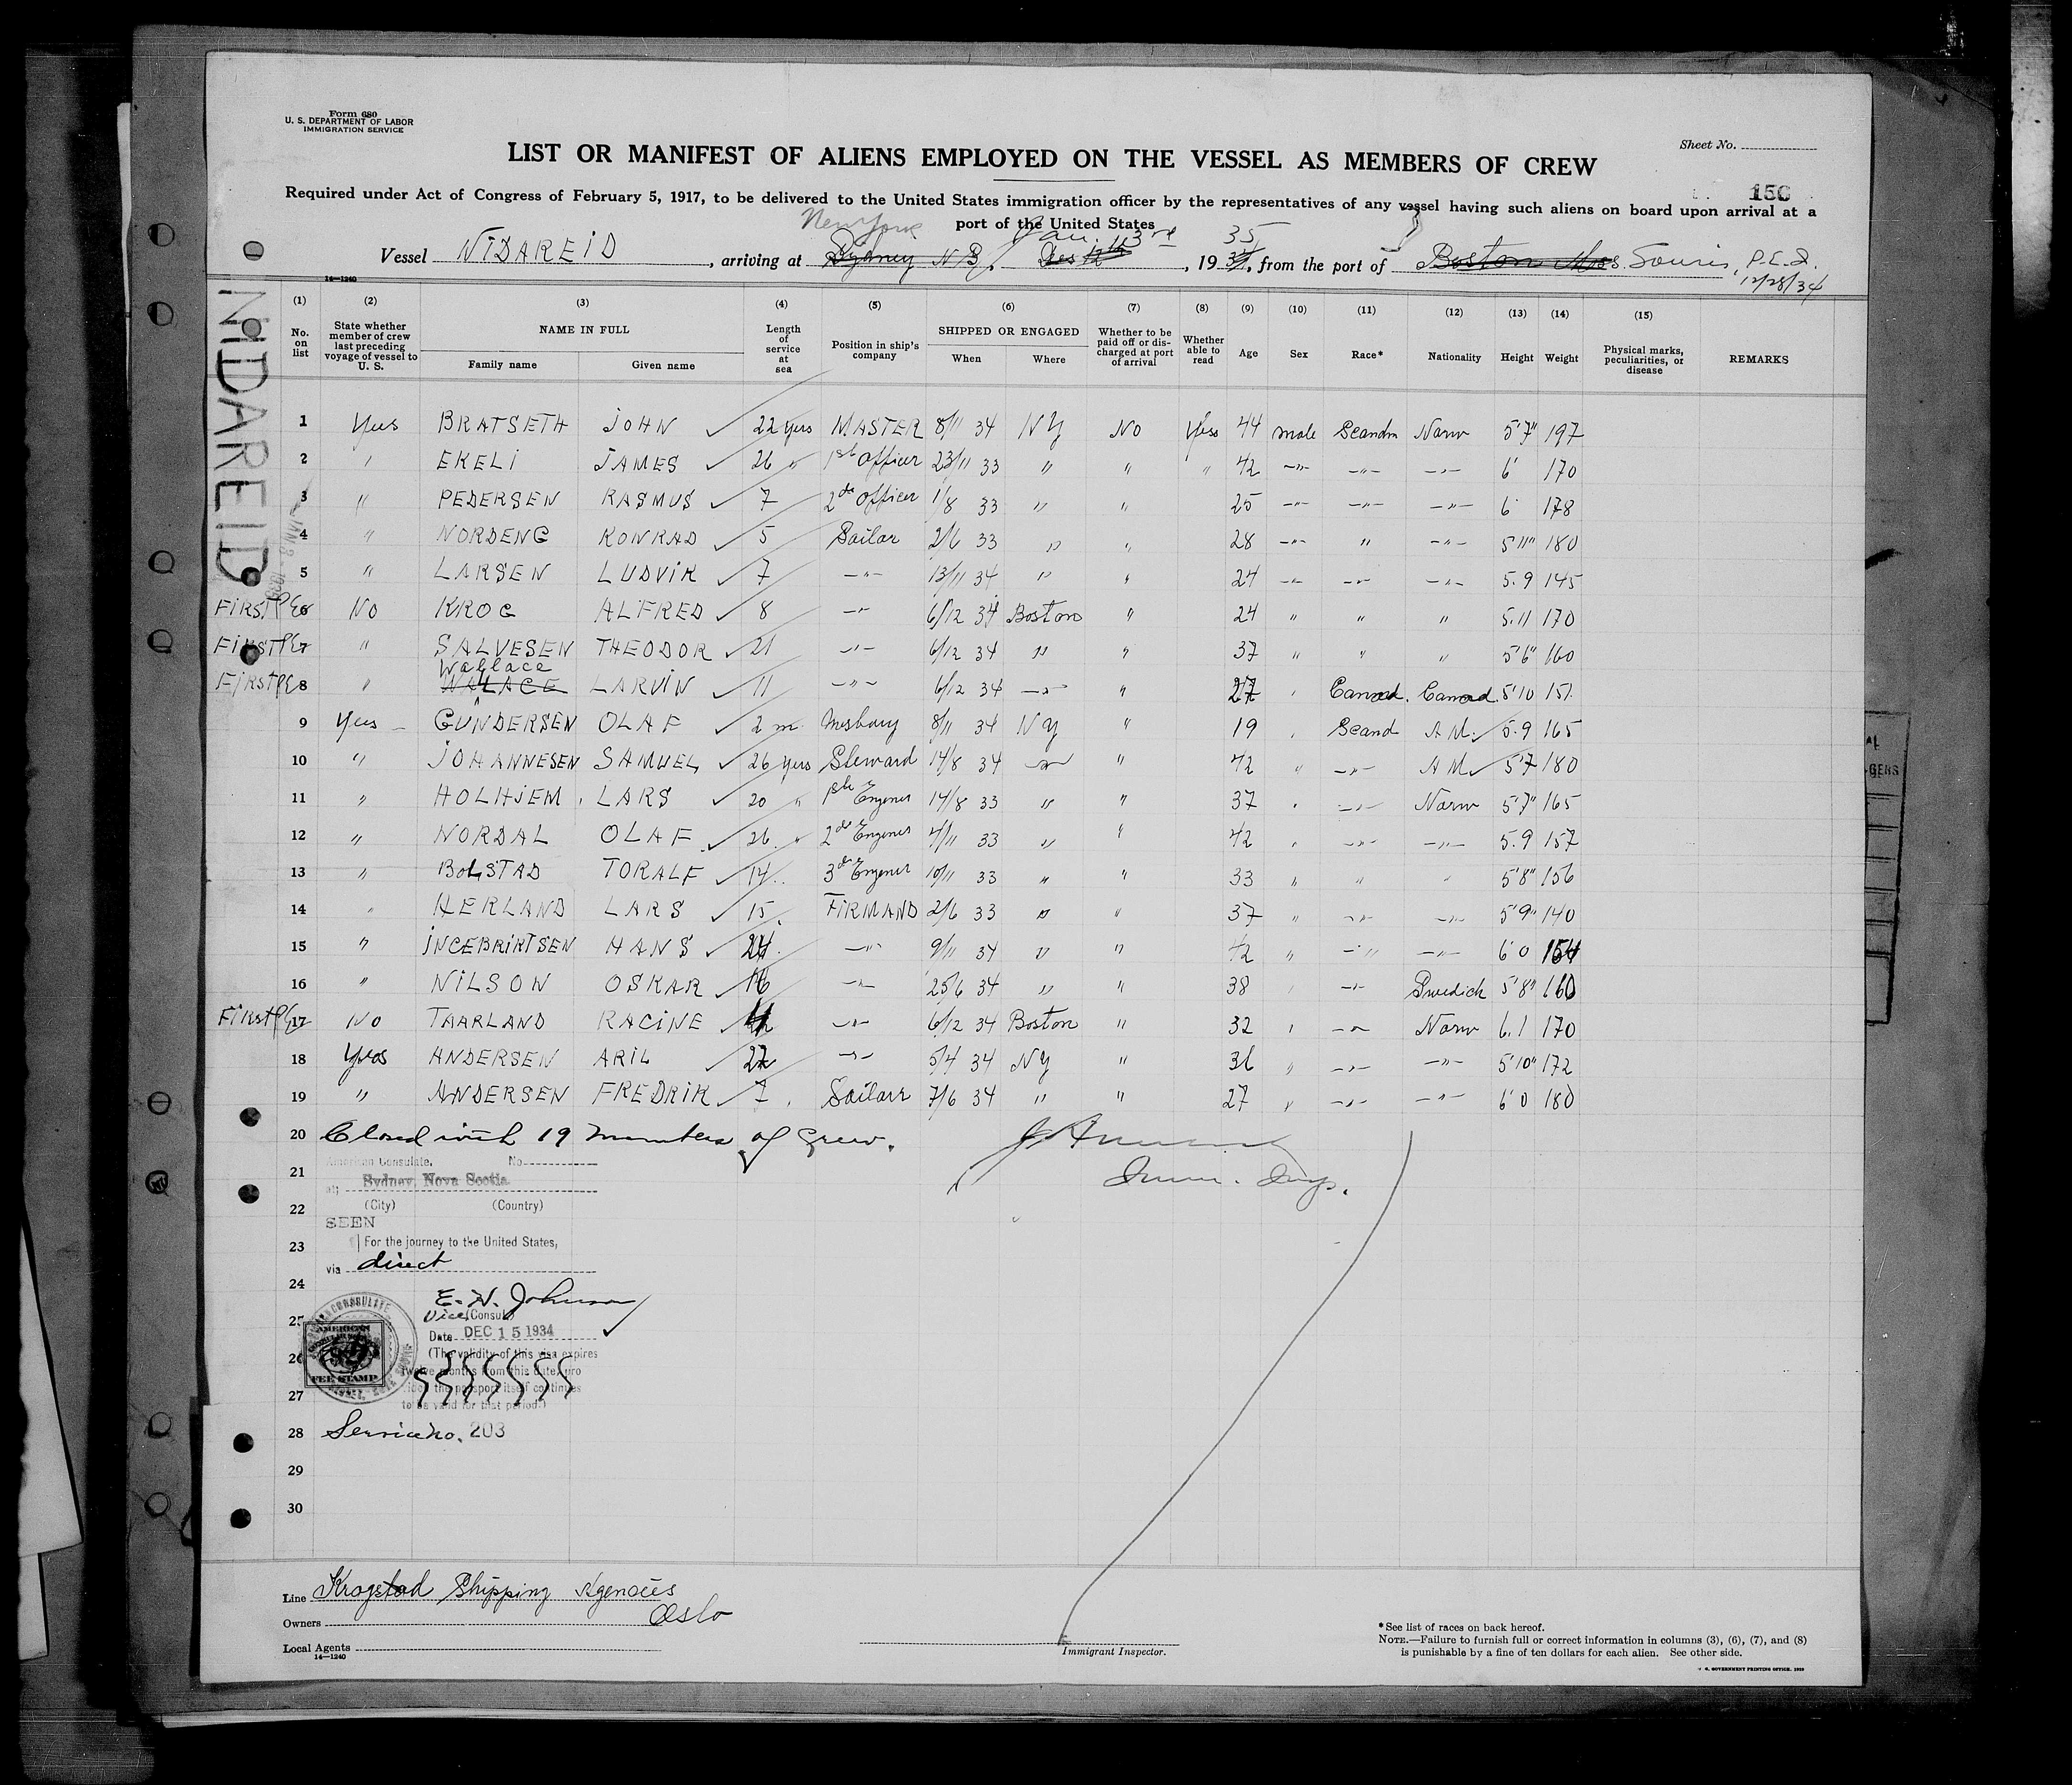 Form 680
U. S. DEPARTMENT OF LABOR
IMMIGRATION SERVICE
Sheet No.
LIST OR MANIFEST OF ALIENS EMPLOYED ON THE VESSEL AS MEMBERS OF CREW
150
Required under Act of Congress of February 5, 1917, to be delivered to the United States immigration officer by the representatives of any vessel having such aliens on board upon arrival at a
port of the United States
New York Jan. 3rd 35
Vessel NIDAREID, arriving at Sydney N B, Des, 1934, from the port of Boston Mass Souris, P.E.I.
12/28/34
14—1240
NIDAREID
(1) (2) (3) (4) (5) (6) (7) (8) (9) (10) (11) (12) (13) (14) (15)
No. on list State whether member of crew last preceding voyage of vessel to U. S. NAME IN FULL Family name Given name Length of service at sea Position in ship's company SHIPPED OR ENGAGED When Where Whether to be paid off or discharged at port of arrival Whether able to read Age Sex Race* Nationality Height Weight Physical marks, peculiarities, or disease REMARKS
1 Yees BRATSETH JOHN 22 yers MASTER 8/11 34 N Y No Yess 44 male Scandn Norw 5'7" 197
2 " EKELI JAMES 26 " 1st officer 23/11 33 " " " 42 -"- -"- -"- 6' 170
3 " PEDERSEN RASMUS 7 2de officer 1/8 33 " " 25 -"- -"- -"- 6' 178
4 " NORDENG KONRAD 5 Sailor 2/6 33 " " 28 -"- " -"- 5'11" 180
5 " LARSEN LUDVIK 7 -"- 13/11 34 " " 24 -"- -"- -"- 5.9 145
FIRST 6 No KROG ALFRED 8 -"- 6/12 34 Boston " 24 " " " 5.11 170
FIRST 7 " SALVESEN THEODOR 21 -"- 6/12 34 " " 37 " " " 5'6" 160
Wallace
FIRST 8 " WALACE LARVIN 11 -"- 6/12 34 -"- " 27 " Canad. Canad. 5'10 151
9 Yees GUNDERSEN OLAF 2 m. Mesboy 8/11 34 N Y " 19 " Scand A M. 5.9 165
10 " JOHANNESEN SAMUEL 26 yers Steward 14/8 34 -"- " 42 " -"- A M 5'7 180
11 " HOLHJEM LARS 20 " 1ste Engener 14/8 33 " " 37 " -"- Norw 5'7" 165
12 " NORDAL OLAF 26 " 2de Engener 4/11 33 " " 42 " -"- -"- 5.9 157
13 " BOLSTAD TORALF 14 3de Engener 10/11 33 " " 33 " " " 5'8" 156
14 " HERLAND LARS 15 FIRMAND 2/6 33 " " 37 " -"- -"- 5'9" 140
15 " INGEBRIKTSEN HANS 24 -"- 9/11 34 " " 42 " -"- -"- 6'0 154
16 " NILSON OSKAR 16 -"- 25/6 34 " " 38 " -"- Swedich 5'8" 160
FIRST 17 No TAARLAND RAGINE -"- 6/12 34 Boston " 32 " -"- Norw 6.1 170
18 Yees ANDERSEN ARIL 22 -"- 5/4 34 N Y " 36 " -"- -"- 5'10" 172
19 " ANDERSEN FREDRIK 7 Sailarr 7/6 34 " " 27 " -"- -"- 6'0 180
20 Closed with 19 members of Crew.
21 American Consulate, No
at Sydney, Nova Scotia
Imm. Insp.
22 (City) (Country)
SEEN
23 For the journey to the United States,
via direct
24
E. H. Johnson
25 Vice (Consul)
Date DEC 15 1934
26 (The validity of this visa expires
twelve months from this date, pro
27 vided the passport itself continues
to be valid for that period.)
AMERICAN
FEE STAMP
28 Service No. 203
29
30
Line Krogstad Shipping Agencies
Owners Oslo
Local Agents
14—1240
Immigrant Inspector.
*See list of races on back hereof.
NOTE.—Failure to furnish full or correct information in columns (3), (6), (7), and (8)
is punishable by a fine of ten dollars for each alien. See other side.
U. S. GOVERNMENT PRINTING OFFICE. 1929